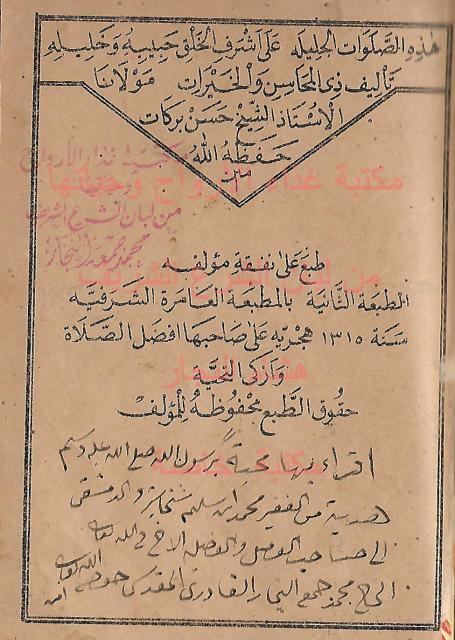 هذه الصلوات الجليله على اشرف الخلق حبيبه وخليله
تأليف ذى المحاسن والخيرات مولانا
الاستاذ الشيخ حسن بركات
حفظه الله
مكتبة غذاء الأرواح
من لبان الشرع الشريف
محمد جمعه النجار
مكتبة غذاء
من لبان
طبع على نفقة مؤلفه
المطبعة الثانية بالمطبعة العامرة الشرفيه
سنة ١٣١٥ هجريه على صاحبها افضل الصلاة
وازكى التحية
حقوق الطبع محفوظة للمؤلف
مكتبة
اقراء بها محبة برسول الله صلى الله عليه وسلم
هدية من الفقير محمد ابن سليم الدمشقى
الى صاحب الفضل والفضله الاخ فى الله
الحاج محمد جمعه النجار القادرى حفظه الله